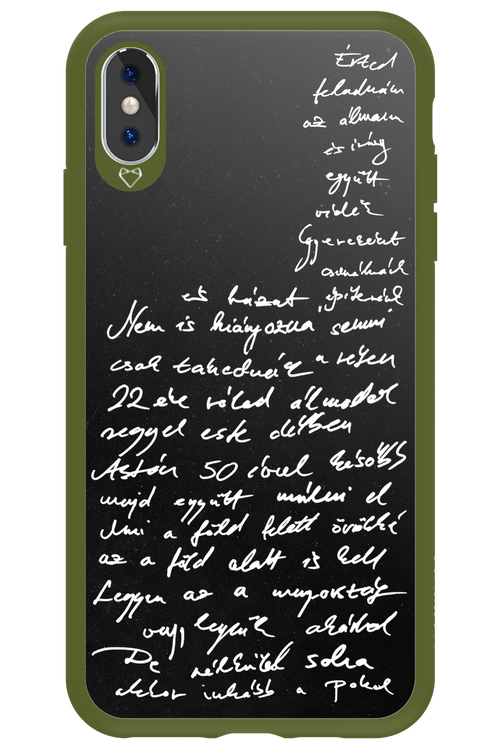 Érted
feladnám
az álmom
és irány
együtt
vidék
Gyerekeket
csinálnánk
és házat építenénk
Nem is hiányozna semmi
csak tekednénk a réten
22 éve rólad álmodok
reggel este délben
Aztán 50 évvel később
majd együtt múlni el
Ami a föld felett örökké
az a föld alatt is kell
Legyen az a menyország
vagy legyünk akárhol
De nélküled soha
akkor inkább a Pokol